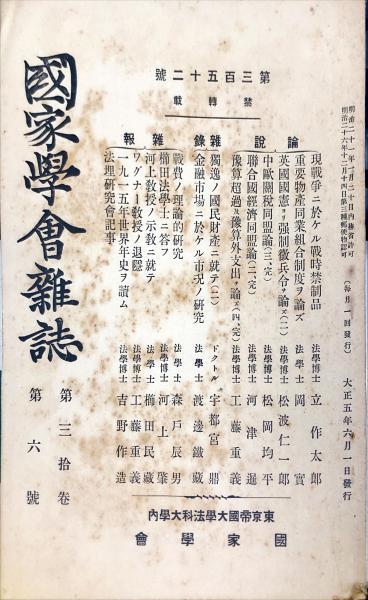 明治二十一年一月二十日內務省許可
明治二十六年十二月十四日第三種郵便物認可
（每月一回發行）
大正五年六月一日發行
第三百五十二號
禁轉載
論說
現戰爭ニ於ケル戰時禁制品 法學博士 立作太郎
重要物產同業組合制度ヲ論ズ 法學士 岡實
英國國憲ヨリ强制徵兵令ヲ論ズ（二） 法學博士 松波仁一郎
中歐關稅同盟論（三、完） 法學博士 松岡均平
聯合國經濟同盟論（二、完） 法學博士 河津暹
豫算超過及豫算外支出ヲ論ズ（四、完） 法學博士 工藤重義
雜錄
獨逸ノ國民財產ニ就テ（二） ドクトル 宇都宮鼎
金融市場ニ於ケル市況ノ硏究 法學士 渡邊鐵藏
戰費ノ理論的硏究 法學士 森戶辰男
雜報
櫛田法學士ニ答フ 法學博士 河上肇
河上敎授ノ示敎ニ就テ 法學士 櫛田民藏
ワグナー敎授ノ退隱 法學博士 工藤重義
一九一五年世界年史ヲ讀ム 法學博士 吉野作造
法理硏究會記事
東京帝國大學法科大學內
國家學會
國家學會雜誌
第三拾卷
第六號